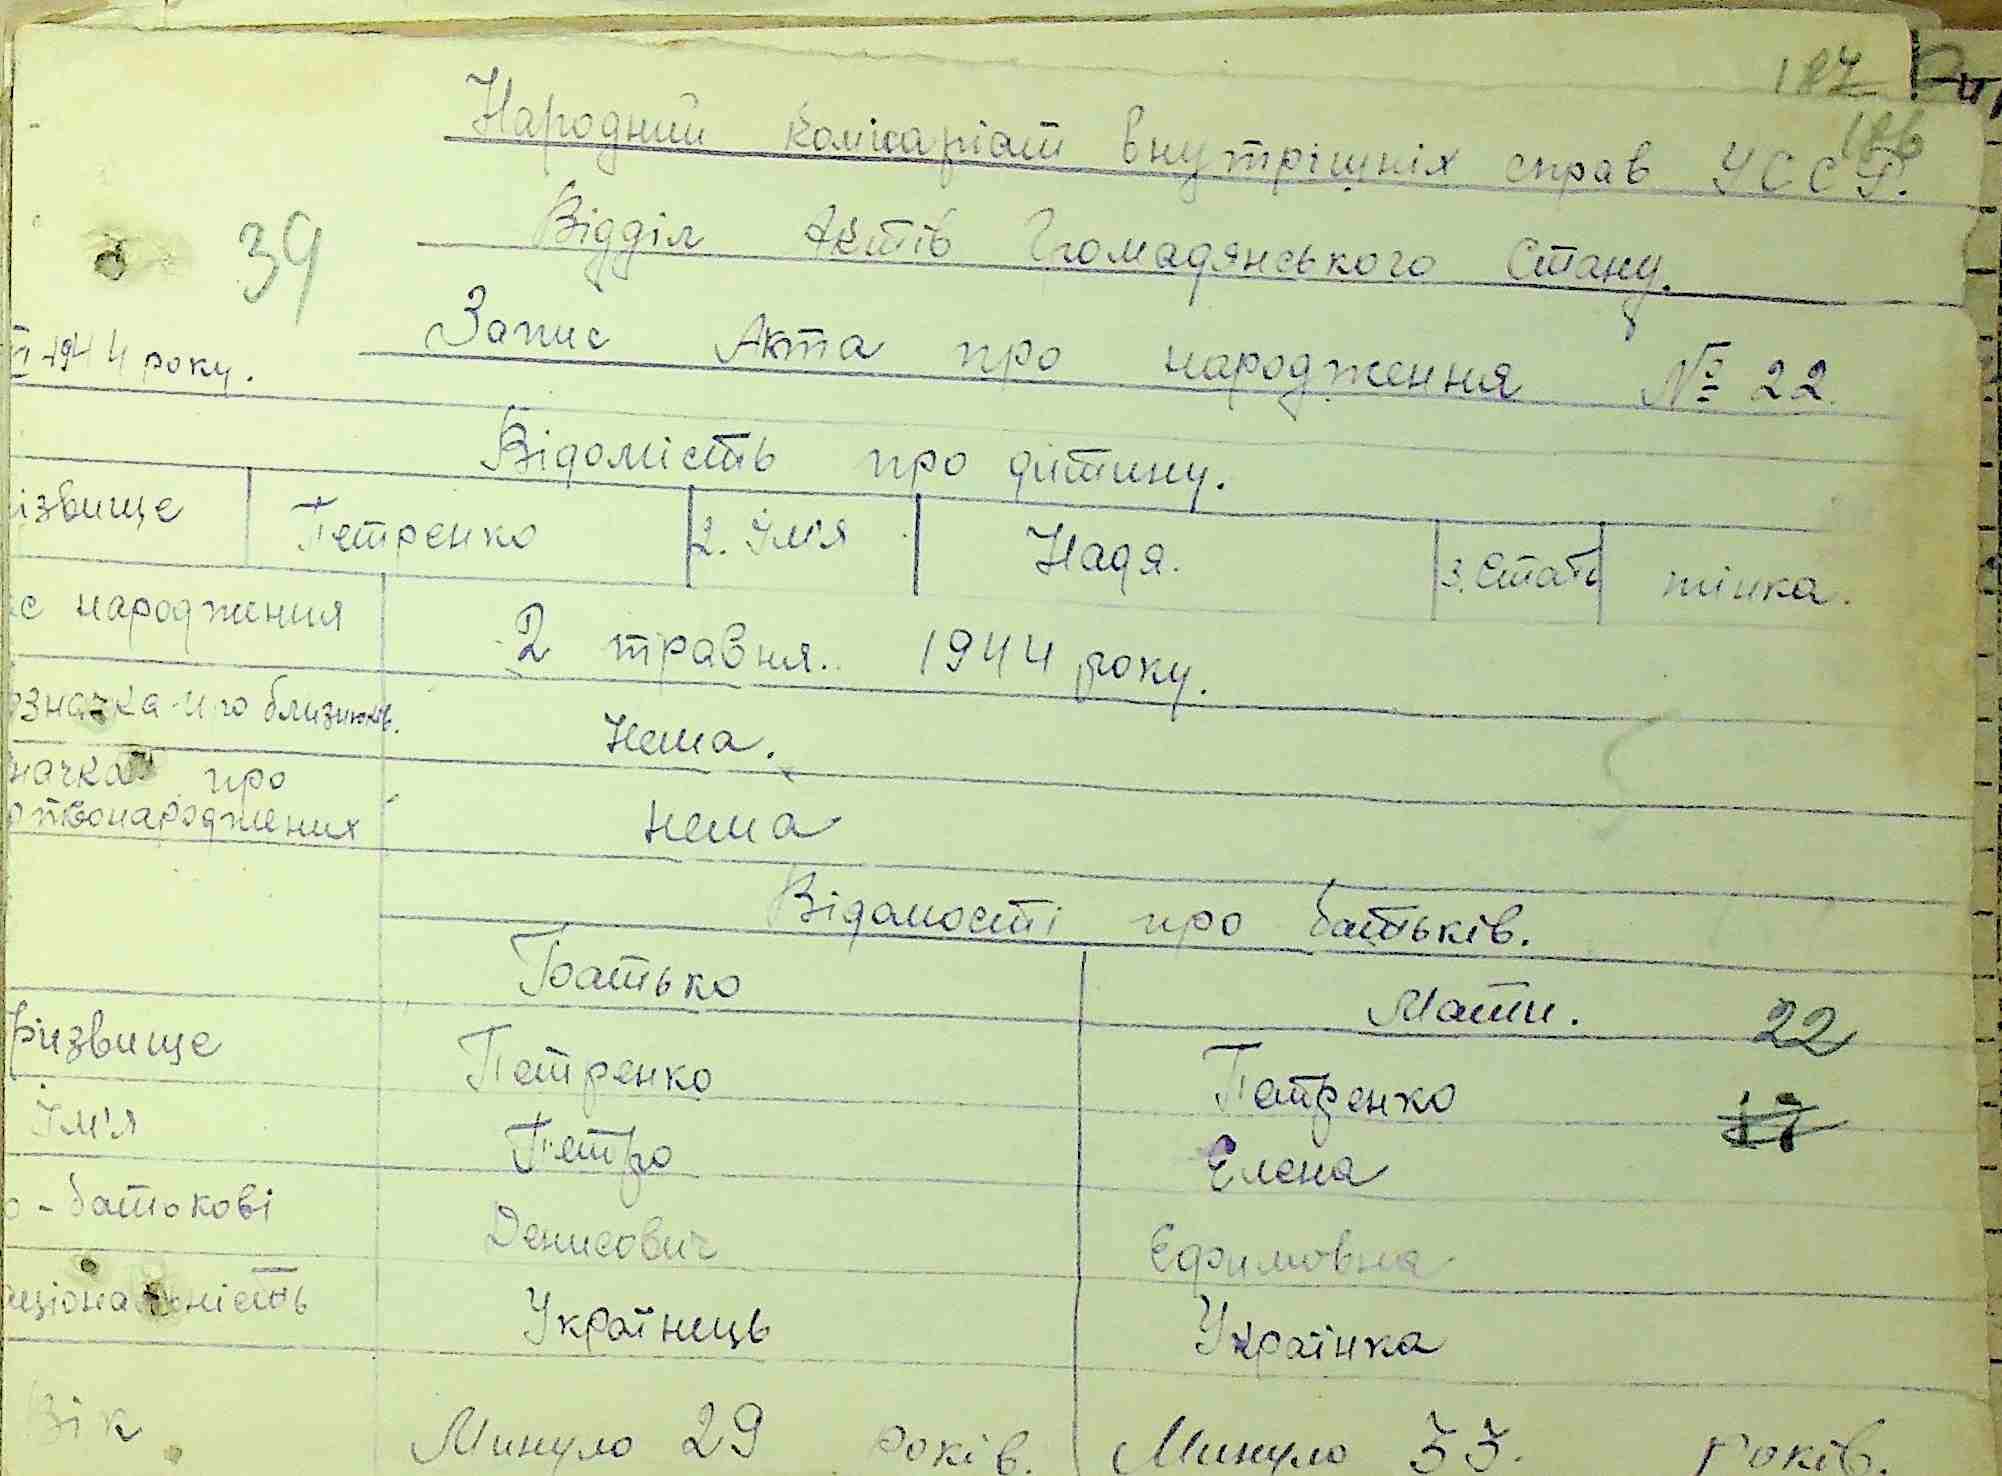 187
186
Народний комісаріат внутрішніх справ УССР.
39
Відділ Актів Громадянського Стану.
1944 року.
Запис Акта про народження № 22.
Відомість про дитину.
ізвище Петренко 2. Ім'я Надя. 3. Стать жінка.
ас народження 2 травня. 1944 року.
ознака його близнюків. нема.
начка про
ртвонароджених нема
Відомості про батьків.
Батько Мати. 22
Фізвище Петренко Петренко 17
Ім'я Петро Елена
о-батькові Денисович Ефимовна
аціональність Українець Українка
Вік Минуло 29 років. Минуло 33. років.